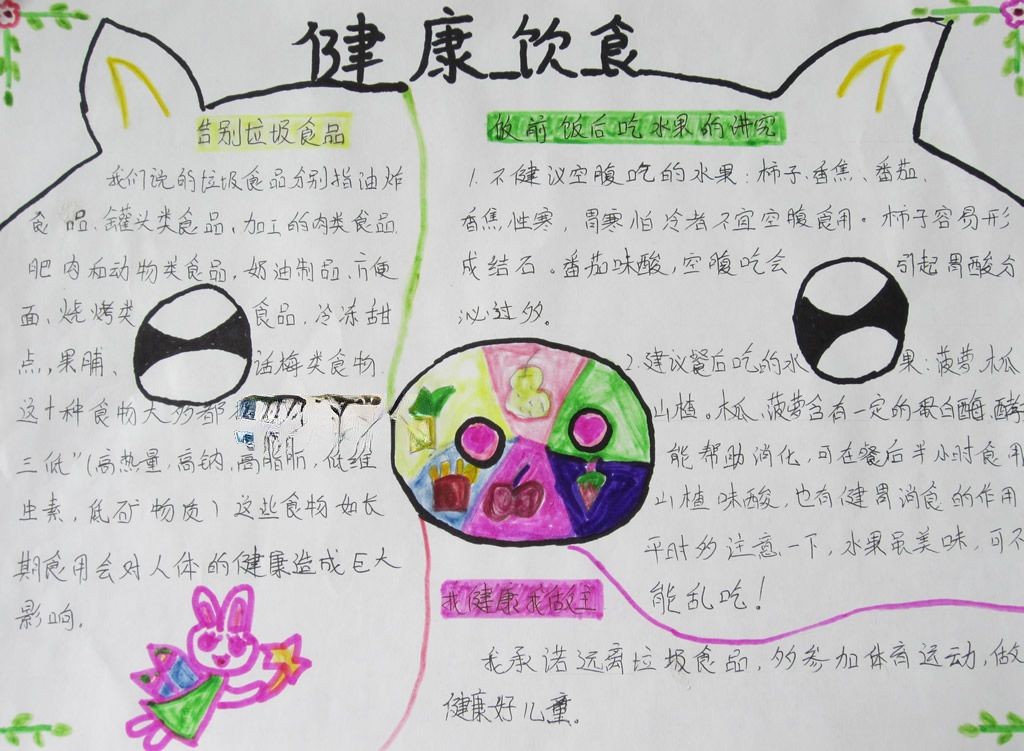 健康饮食
告别垃圾食品
我们说的垃圾食品分别指油炸
食品、罐头类食品、加工的肉类食品
肥肉和动物类食品，奶油制品、方便
面、烧烤类食品，冷冻甜
点，果脯、话梅类食物.
这十种食物大多都
三低”(高热量，高钠，高脂肪，低维
生素，低矿物质）这些食物如长
期食用会对人体的健康造成巨大
影响.
饭前饭后吃水果的讲究
1. 不健议空腹吃的水果：柿子、香焦、番茄、
香焦性寒，胃寒怕冷者不宜空腹食用。柿子容易形
成结石。番茄味酸，空腹吃会引起胃酸分
泌过多。
2.建议餐后吃的水果：菠萝、木瓜
山楂。木瓜、菠萝含有一定的蛋白酶，酵
能帮助消化，可在餐后半小时食用
山楂味酸，也有健胃消食的作用
平时多注意一下，水果虽美味，可不
能乱吃！
我健康我做主
我承诺远离垃圾食品，多参加体育运动，做
健康好儿童。